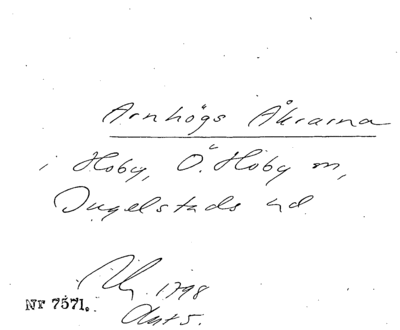 Arnhögs Åkrarna
i Hoby, Ö. Hoby m,
Ingelstads hd.
1798
Akt 5.
Nr 7571.